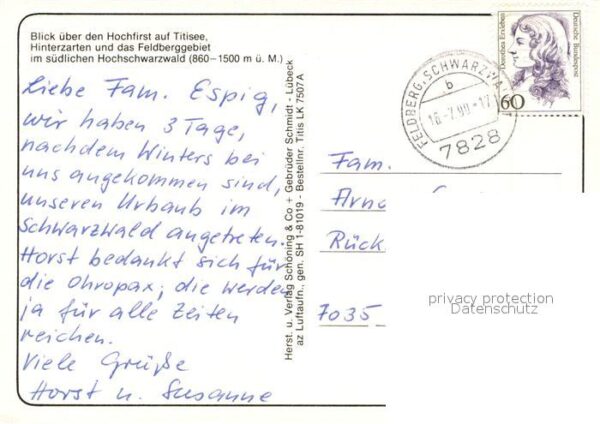 Blick über den Hochfirst auf Titisee,
Hinterzarten und das Feldberggebiet
im südlichen Hochschwarzwald (860–1500 m ü. M.)
Liebe Fam. Espig,
wir haben 3 Tage,
nachdem Winters bei
uns angekommen sind,
unseren Urlaub im
Schwarzwald angetreten.
Horst bedankt sich für
die Ohropax; die werden
ja für alle Zeiten
reichen.
Viele Grüße
Horst u. Susanne
Herst. u. Verlag Schöning & Co + Gebrüder Schmidt - Lübeck
az Luftaufn., gen. SH 1-81019 - Bestellnr. Titis LK 7507A
FELDBERG, SCHWARZWA
b
-7.90-17
7828
Dorothea Erxleben
Deutsche Bundespost
60
Fam.
Arno
Rück
7035
privacy protection
Datenschutz